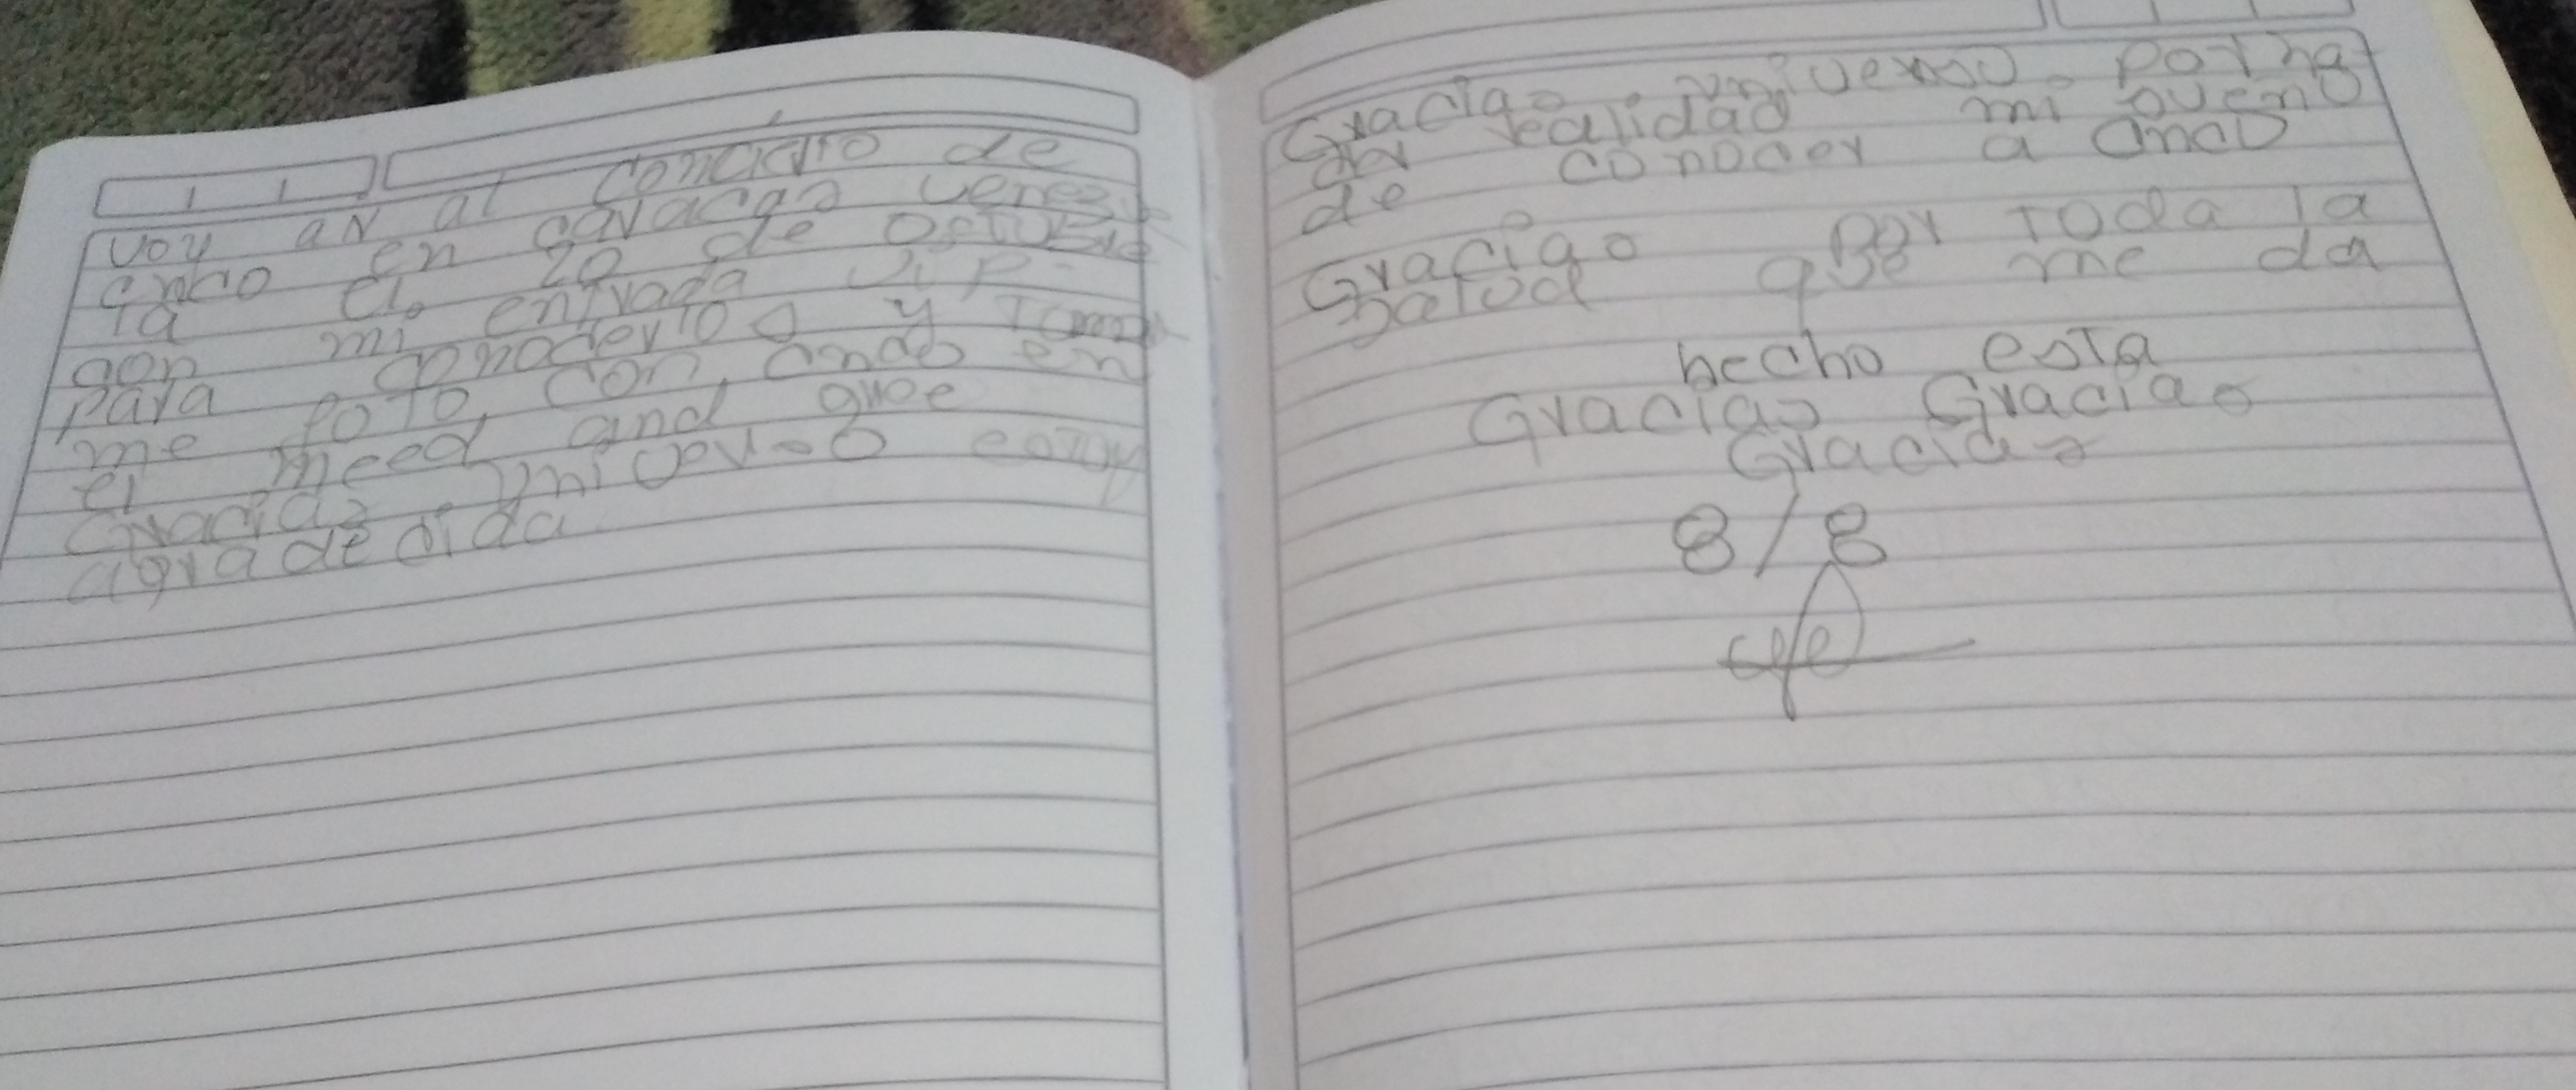 voy an al concierto de
cnco en caracas venezu
la el 20 de octubre
con mi entrada vip
para conocerlos y tomar
me foto con cnco en
el meed and gree
Gracias universo estoy
agradecida
Gracias universo por ha
realidad mi sueño
de conocer a cnco
Gracias por toda la
salud que me da
hecho esta
Gracias Gracias
Gracias
8/8